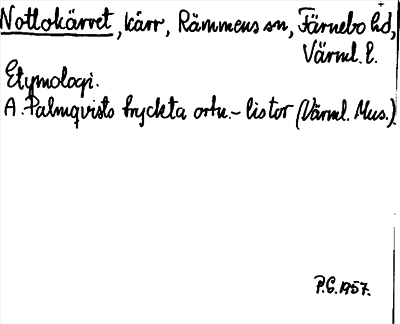 Nottokärret, kärr, Rämmens sn, Färnebo hd,
Värml. l.
Etymologi.
A. Palmqvists tryckta ortn.-listor (Värml. Mus.).
P.G. 1957.